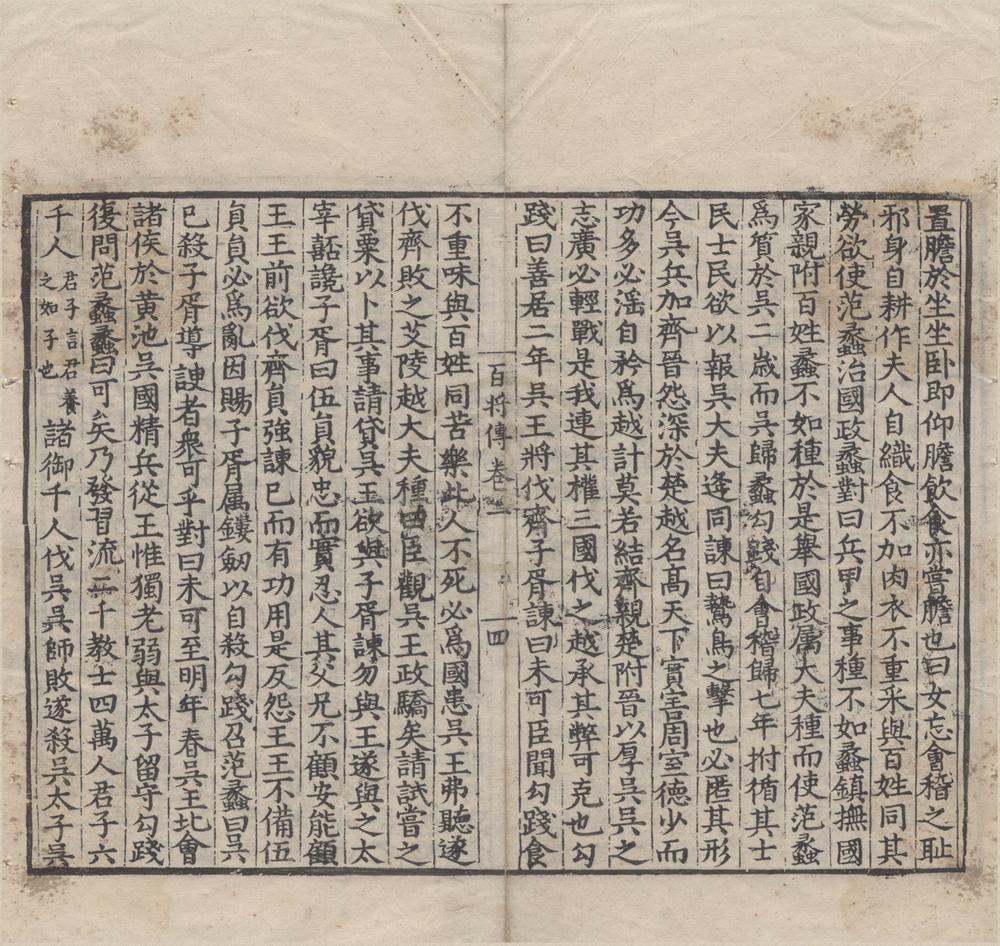 置膽於坐坐卧即仰膽飲食亦嘗膽也曰女忘會稽之耻
邪身自耕作夫人自織食不加肉衣不重采與百姓同其
勞欲使范蠡治國政蠡對曰兵甲之事種不如蠡鎮撫國
家親附百姓蠡不如種於是舉國政属大夫種而使范蠡
爲質於吳二歳而吳歸蠡勾踐自會稽歸七年拊循其士
民士民欲以報吳大夫逄同諫曰鷙鳥之擊也必匿其形
今吳兵加齊晉怨深於楚越名髙天下實害周室德少而
功多必滛自矜爲越計莫若結齊親楚附晉以厚吳吳之
志廣必輕戰是我連其權三國伐之越承其弊可克也勾
踐曰善居二年吳王將伐齊子胥諫曰未可臣聞勾踐食
百將傳卷一 四
不重味與百姓同苦樂此人不死必爲國患吳王弗聽遂
伐齊敗之艾陵越大夫種曰臣觀吳王政驕矣請試嘗之
貸粟以卜其事請貸吳王欲與子胥諫勿與王遂與之太
宰嚭讒子胥曰伍貟貌忠而實忍人其父兄不顧安能顧
王王前欲伐齊貟強諫已而有功用是反怨王王不備伍
貟貟必爲亂因賜子胥属鏤劒以自殺勾踐召范蠡曰吳
已殺子胥導諛者衆可乎對曰未可至明年春吳王北會
諸侯於黄池吳國精兵從王惟獨老弱與太子留守勾踐
復問范蠡蠡曰可矣乃發習流二千教士四萬人君子六
千人君子言君養之如子也諸御千人伐吳吳師敗遂殺吳太子吳